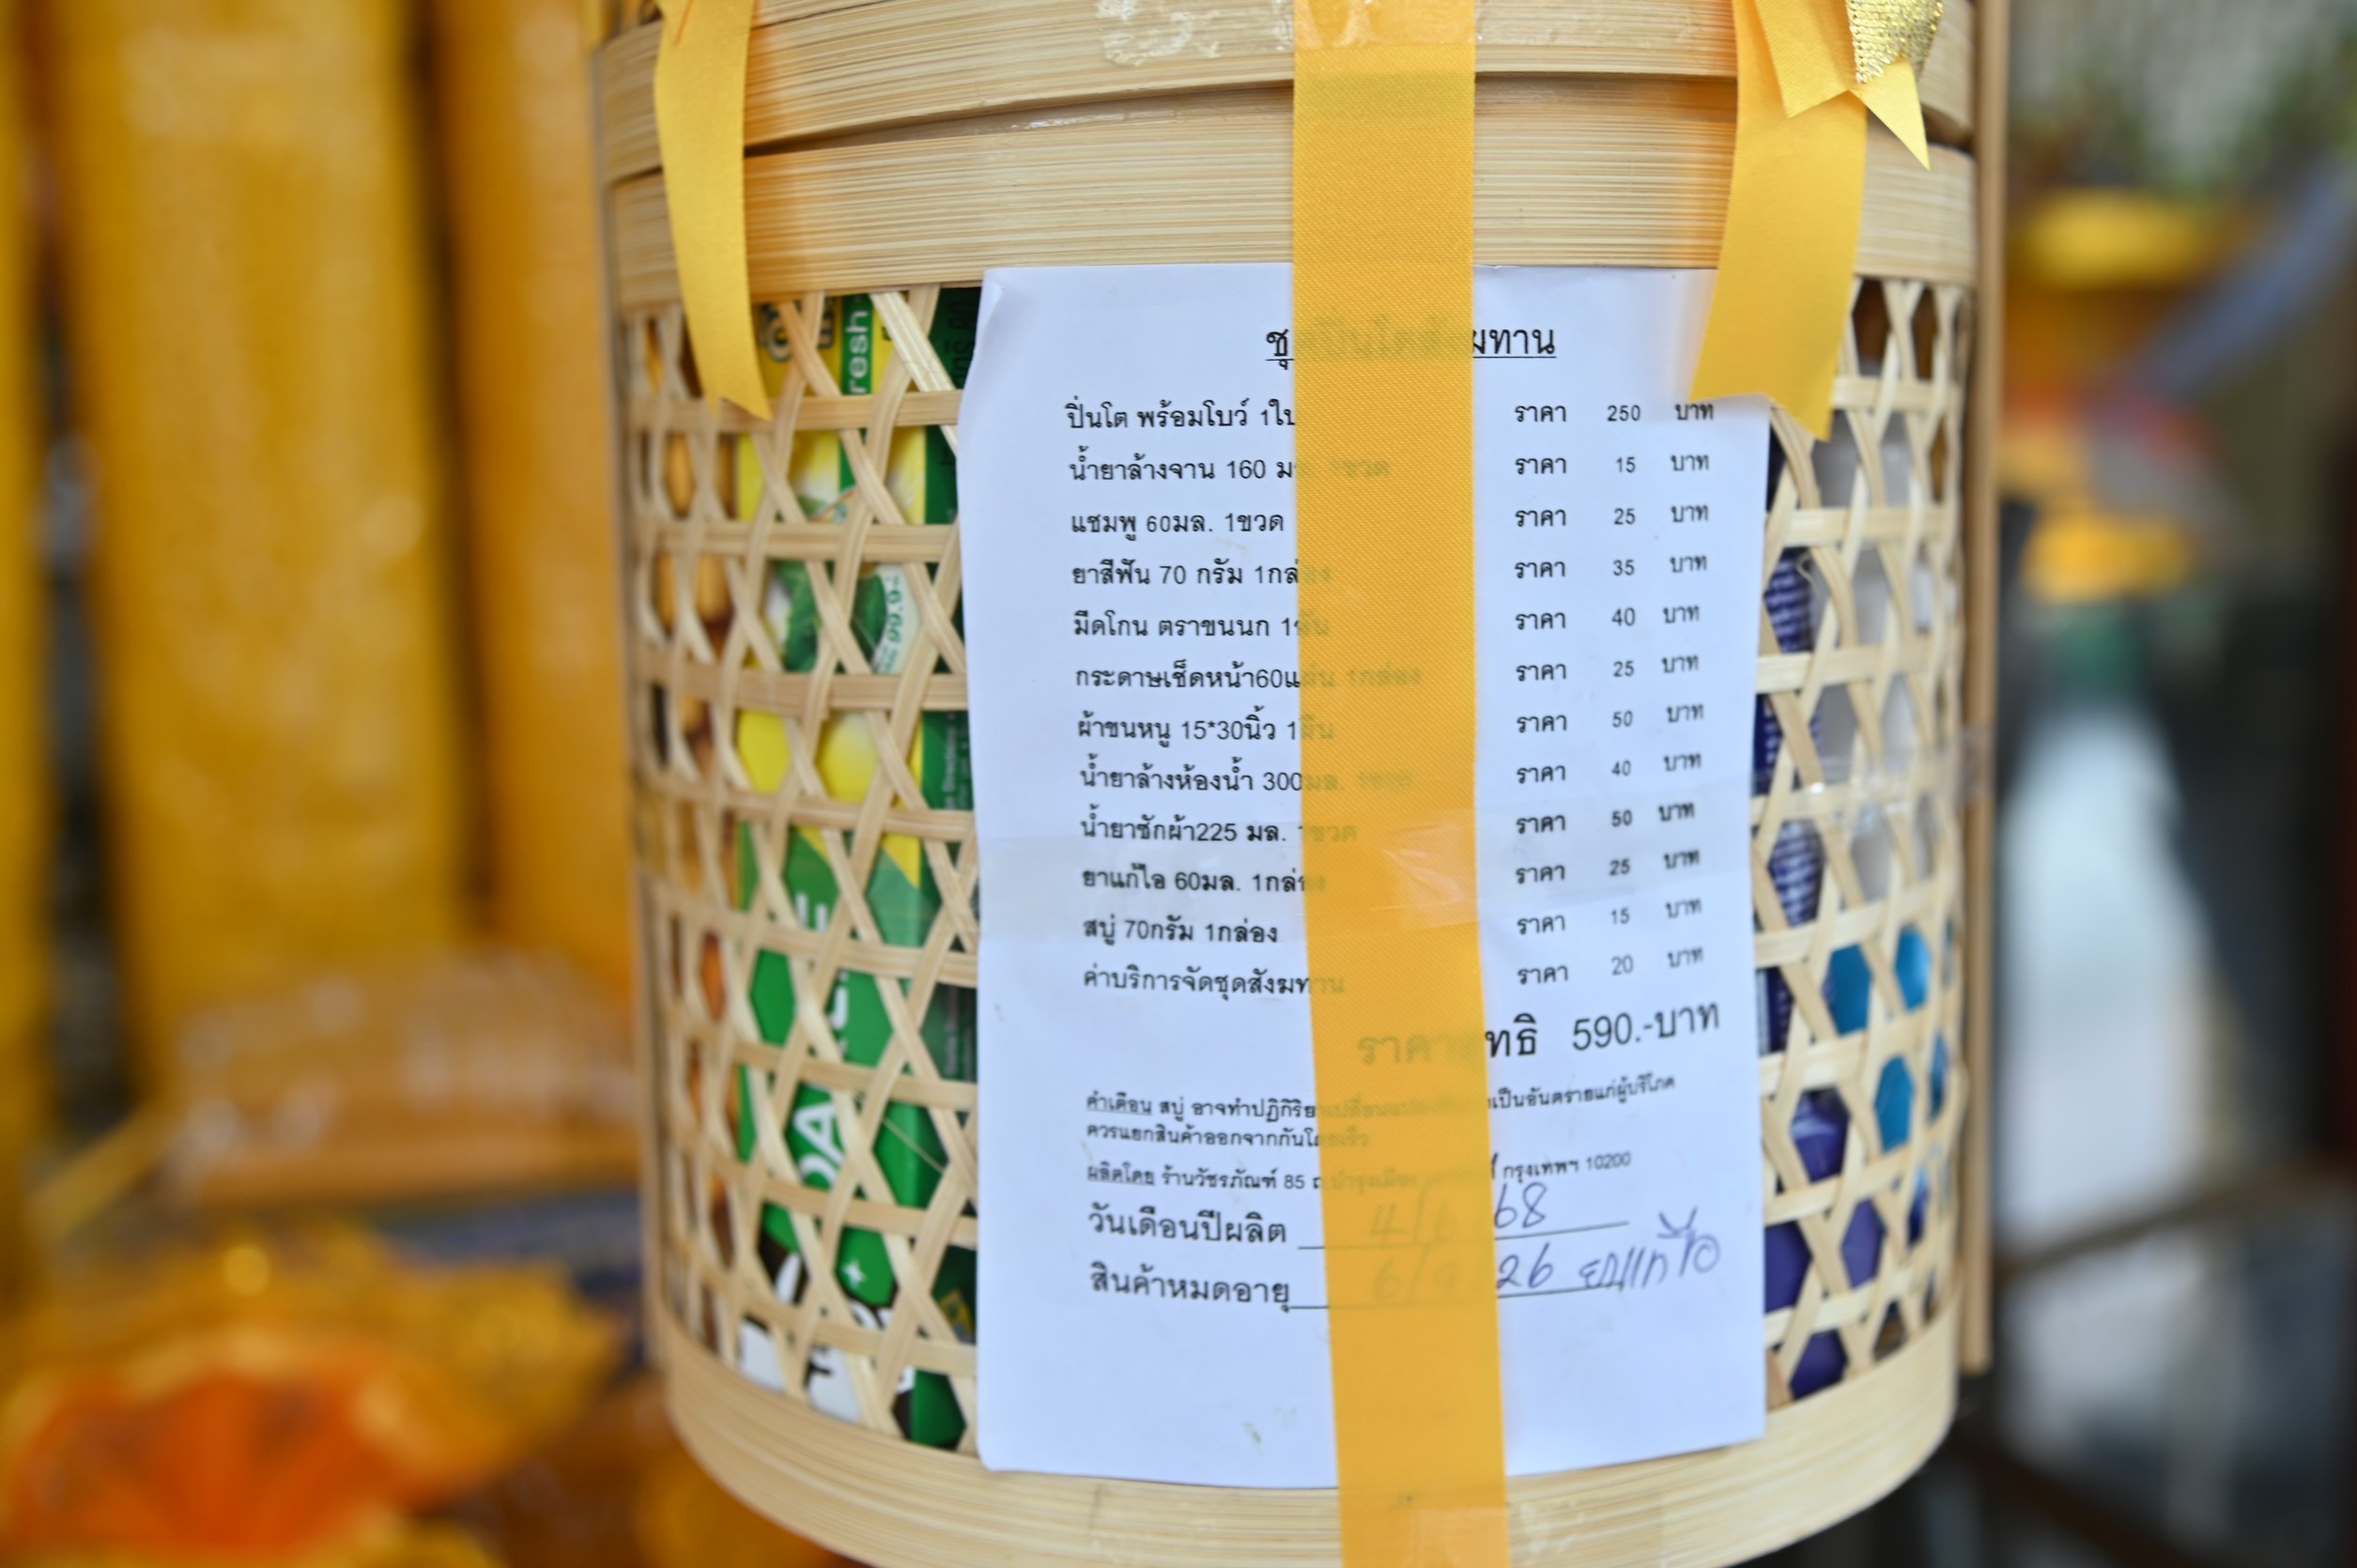 resh
ชุดปิ่นโตสังฆทาน
ปิ่นโต พร้อมโบว์ 1ใบ ราคา 250 บาท
น้ำยาล้างจาน 160 มล. 1ขวด ราคา 15 บาท
แชมพู 60มล. 1ขวด ราคา 25 บาท
ยาสีฟัน 70 กรัม 1กล่อง ราคา 35 บาท
มีดโกน ตราขนนก 1อัน ราคา 40 บาท
กระดาษเช็ดหน้า60แผ่น 1กล่อง ราคา 25 บาท
ผ้าขนหนู 15*30นิ้ว 1ผืน ราคา 50 บาท
น้ำยาล้างห้องน้ำ 300มล. 1ขวด ราคา 40 บาท
น้ำยาซักผ้า225 มล. 1ขวด ราคา 50 บาท
ยาแก้ไอ 60มล. 1กล่อง ราคา 25 บาท
สบู่ 70กรัม 1กล่อง ราคา 15 บาท
ค่าบริการจัดชุดสังฆทาน ราคา 20 บาท
ราคาสุทธิ 590.-บาท
คำเตือน สบู่ อาจทำปฏิกิริยาเปลี่ยนแปลง เป็นอันตรายแก่ผู้บริโภค
ควรแยกสินค้าออกจากกันโดยเร็ว
ผลิตโดย ร้านวัชรภัณฑ์ 85 ถ.บำรุงเมือง กรุงเทพฯ 10200
วันเดือนปีผลิต 4/6/68
สินค้าหมดอายุ 6/9/26 ยาแก้ไอ